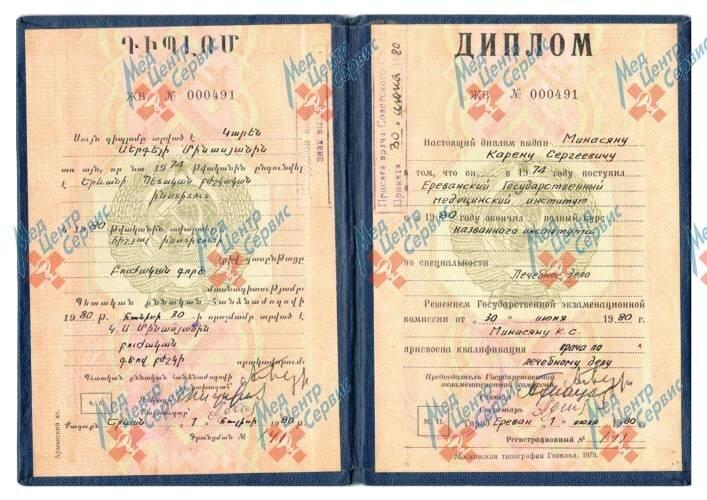 ԴԻՊԼՈՄ
ЖВ № 000491
Սույն դիպլոմը տրված է Կարեն
Սերգեյի Մինասյանին
առ այն, որ նա 1974 թվականին ընդունվել
է Երևանի Պետական բժշկական
ինստիտուտ
և 1980 թվականին ավարտել
նշված ինստիտուտի
լրիվ դասընթացը
բուժական գործ
մասնագիտությամբ:
Պետական քննական հանձնաժողովի
1980 թ. հունիսի 30-ի որոշմամբ տրված է
Կ.Ս. Մինասյանին
բուժական
գծով բժշկի
որակավորում:
Պետական քննական հանձնաժողովի
նախագահ
Կ.Տ.
Քաղաք Երևան 1 հուլիսի 1980 թ.
Գրանցման №
Армянский яз.
ДИПЛОМ
ЖВ № 000491
Присяга врача Советского С
Принята 30 июня 1980
Настоящий диплом выдан Минасяну
Карену Сергеевичу
в том, что он в 1974 году поступил
в Ереванский Государственный
медицинский институт
и в 1980 году окончил полный курс
названного института
по специальности
Лечебное дело
Решением Государственной экзаменационной
комиссии от „30“ июня 1980 г.
Минасяну К.С.
присвоена квалификация врача по
лечебному делу
Председатель Государственной
экзаменационной комиссии
Ректор
Секретарь
М. П. Город Ереван „1“ июля 1980 г.
Регистрационный №
Московская типография Гознака. 1979.
Мед Центр Сервис
Мед Центр Сервис
Мед Центр Сервис
Мед Центр Сервис
Мед Центр Сервис
Мед Центр Сервис